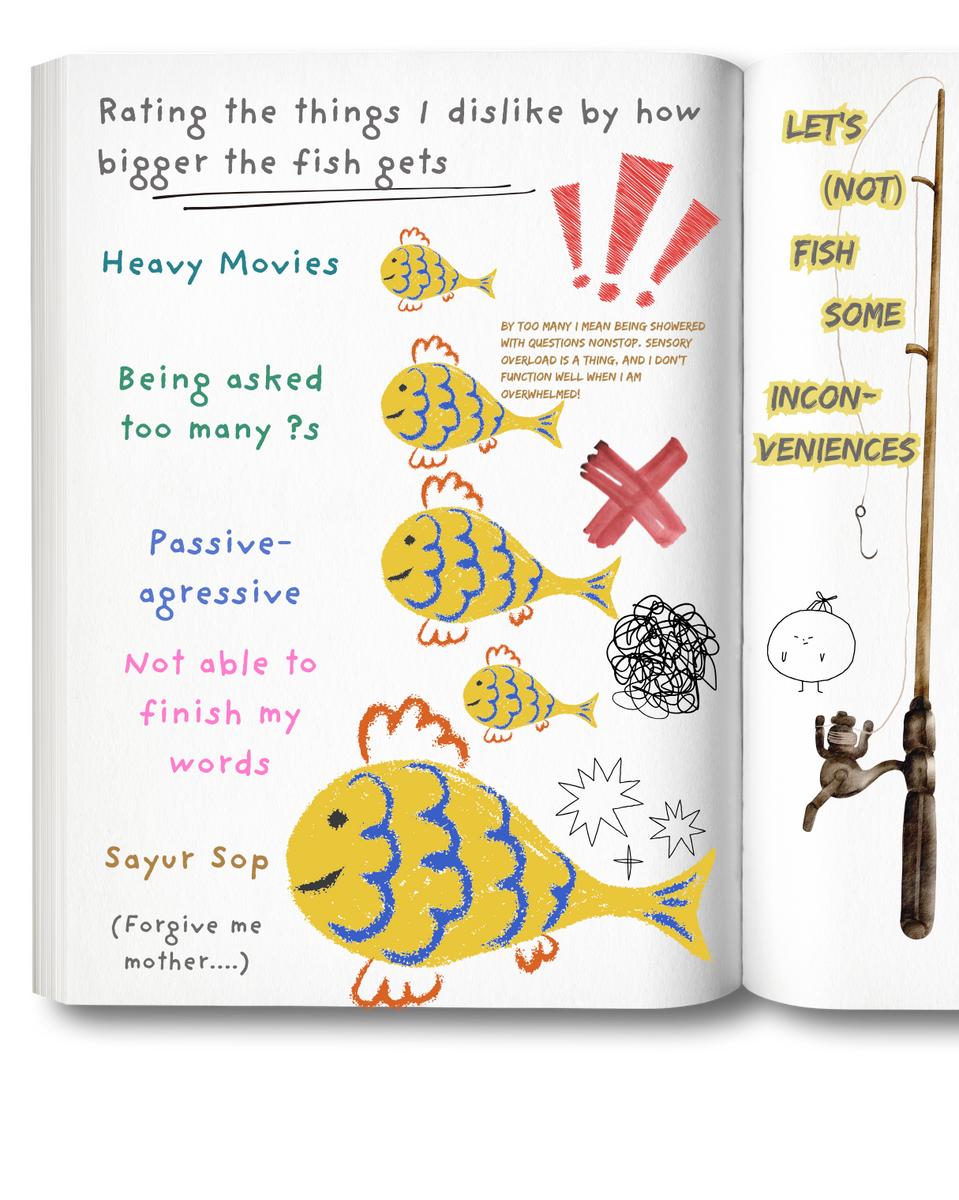 Rating the things I dislike by how
bigger the fish gets
Heavy Movies
BY TOO MANY I MEAN BEING SHOWERED
WITH QUESTIONS NONSTOP. SENSORY
OVERLOAD IS A THING, AND I DON'T
FUNCTION WELL WHEN I AM
OVERWHELMED!
Being asked
too many ?s
Passive-
agressive
Not able to
finish my
words
Sayur Sop
(Forgive me
mother....)
LET'S
(NOT)
FISH
SOME
INCON-
VENIENCES